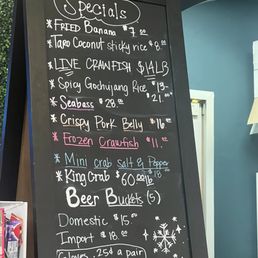 Specials
* FRIED Banana $7.00
* Taro Coconut sticky rice $8.00
* LIVE CRAWFISH $14LB
* Spicy Gochujang Rice $13-
21.00
* Seabass $28.00
* Crispy Pork Belly $16.00
* Frozen Crawfish $11.00
* Mini crab Salt & Pepper
$18.00
* King Crab $60.00 lb
Beer Buckets (5)
Domestic $15.00
Import $18.00
Gloves 25¢ a pair